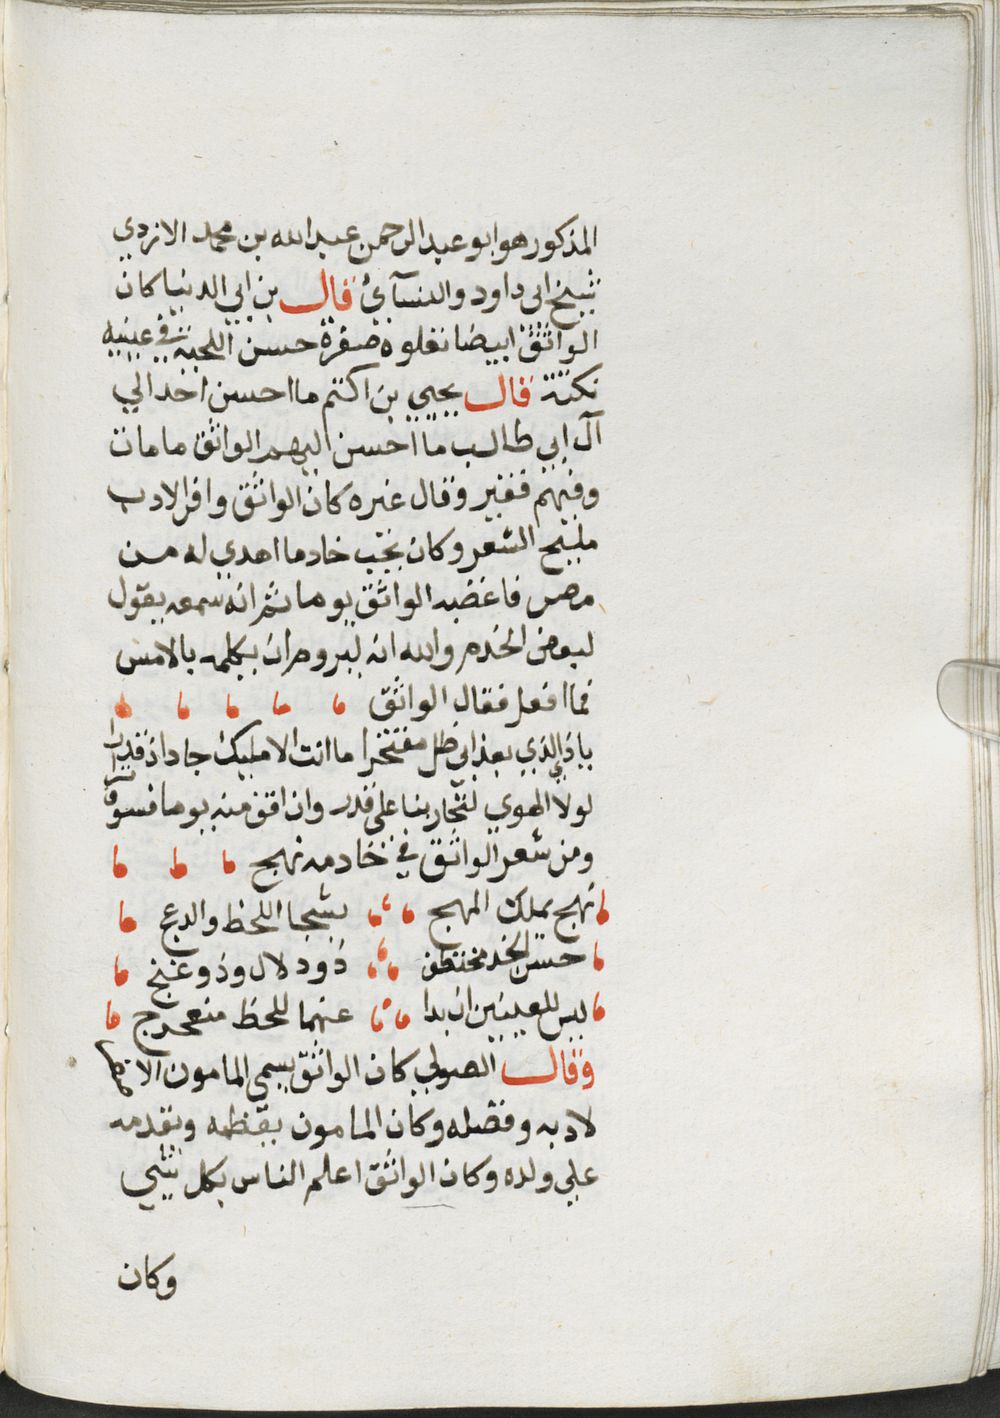 المذكور هو ابو عبد الرحمن عبد الله بن محمد الازدي
شيخ ابى داود والنسآئ قال بن ابي الدنيا كان
الواثق ابيضا تعلوه صفرة حسن اللحية في عينيه
نكتة قال يحيي بن اكتم ما احسن احد الي
آل ابي طالب ما احسن اليهم الواثق ما مات
وفيهم فقير وقال غيره كان الواثق وافر الادب
مليح الشعر وكان يحب خادما اهدي له من
مصر فاغضبه الواثق يوما ثم انه سمعه يقول
لبعض الخدم والله انه ليروم ان يكلمه بالامس
فما افعل فقال الواثق
ياذا الذي بعذابي ظل مفتخرا ما انت الا مليك جار اذ قدرا
لولا الهوي لتجارينا علي قدر وان افق منه يوما فسوف ترا
ومن شعر الواثق في خادمه نهج
نهج يملك المهج بشجا اللحظ والدعج
حسن الخد مختطف ذو دلال وذو غنج
ليس للعينين ان بدا عنهما للحظ منعرج
وقال الصولي كان الواثق يسمي المامون الاصغر
لادبه وفضله وكان المامون يعظمه ويقدمه
علي ولده وكان الواثق اعلم الناس بكل شي
وكان